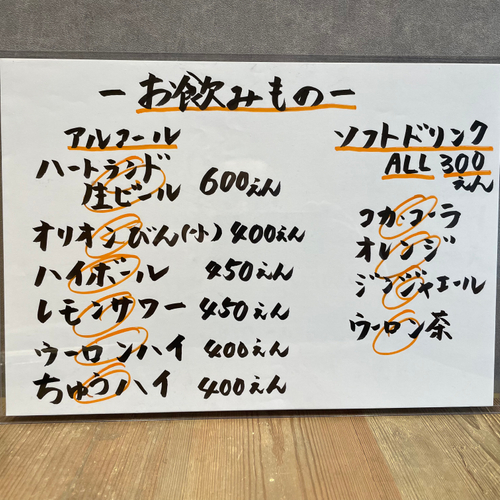 ーお飲みものー
アルコール
ハートランド
生ビール 600えん
オリオンびん(小) 400えん
ハイボール 450えん
レモンサワー 450えん
ウーロンハイ 400えん
ちゅうハイ 400えん
ソフトドリンク
ALL 300
えん
コカ・コーラ
オレンジ
ジンジャエール
ウーロン茶